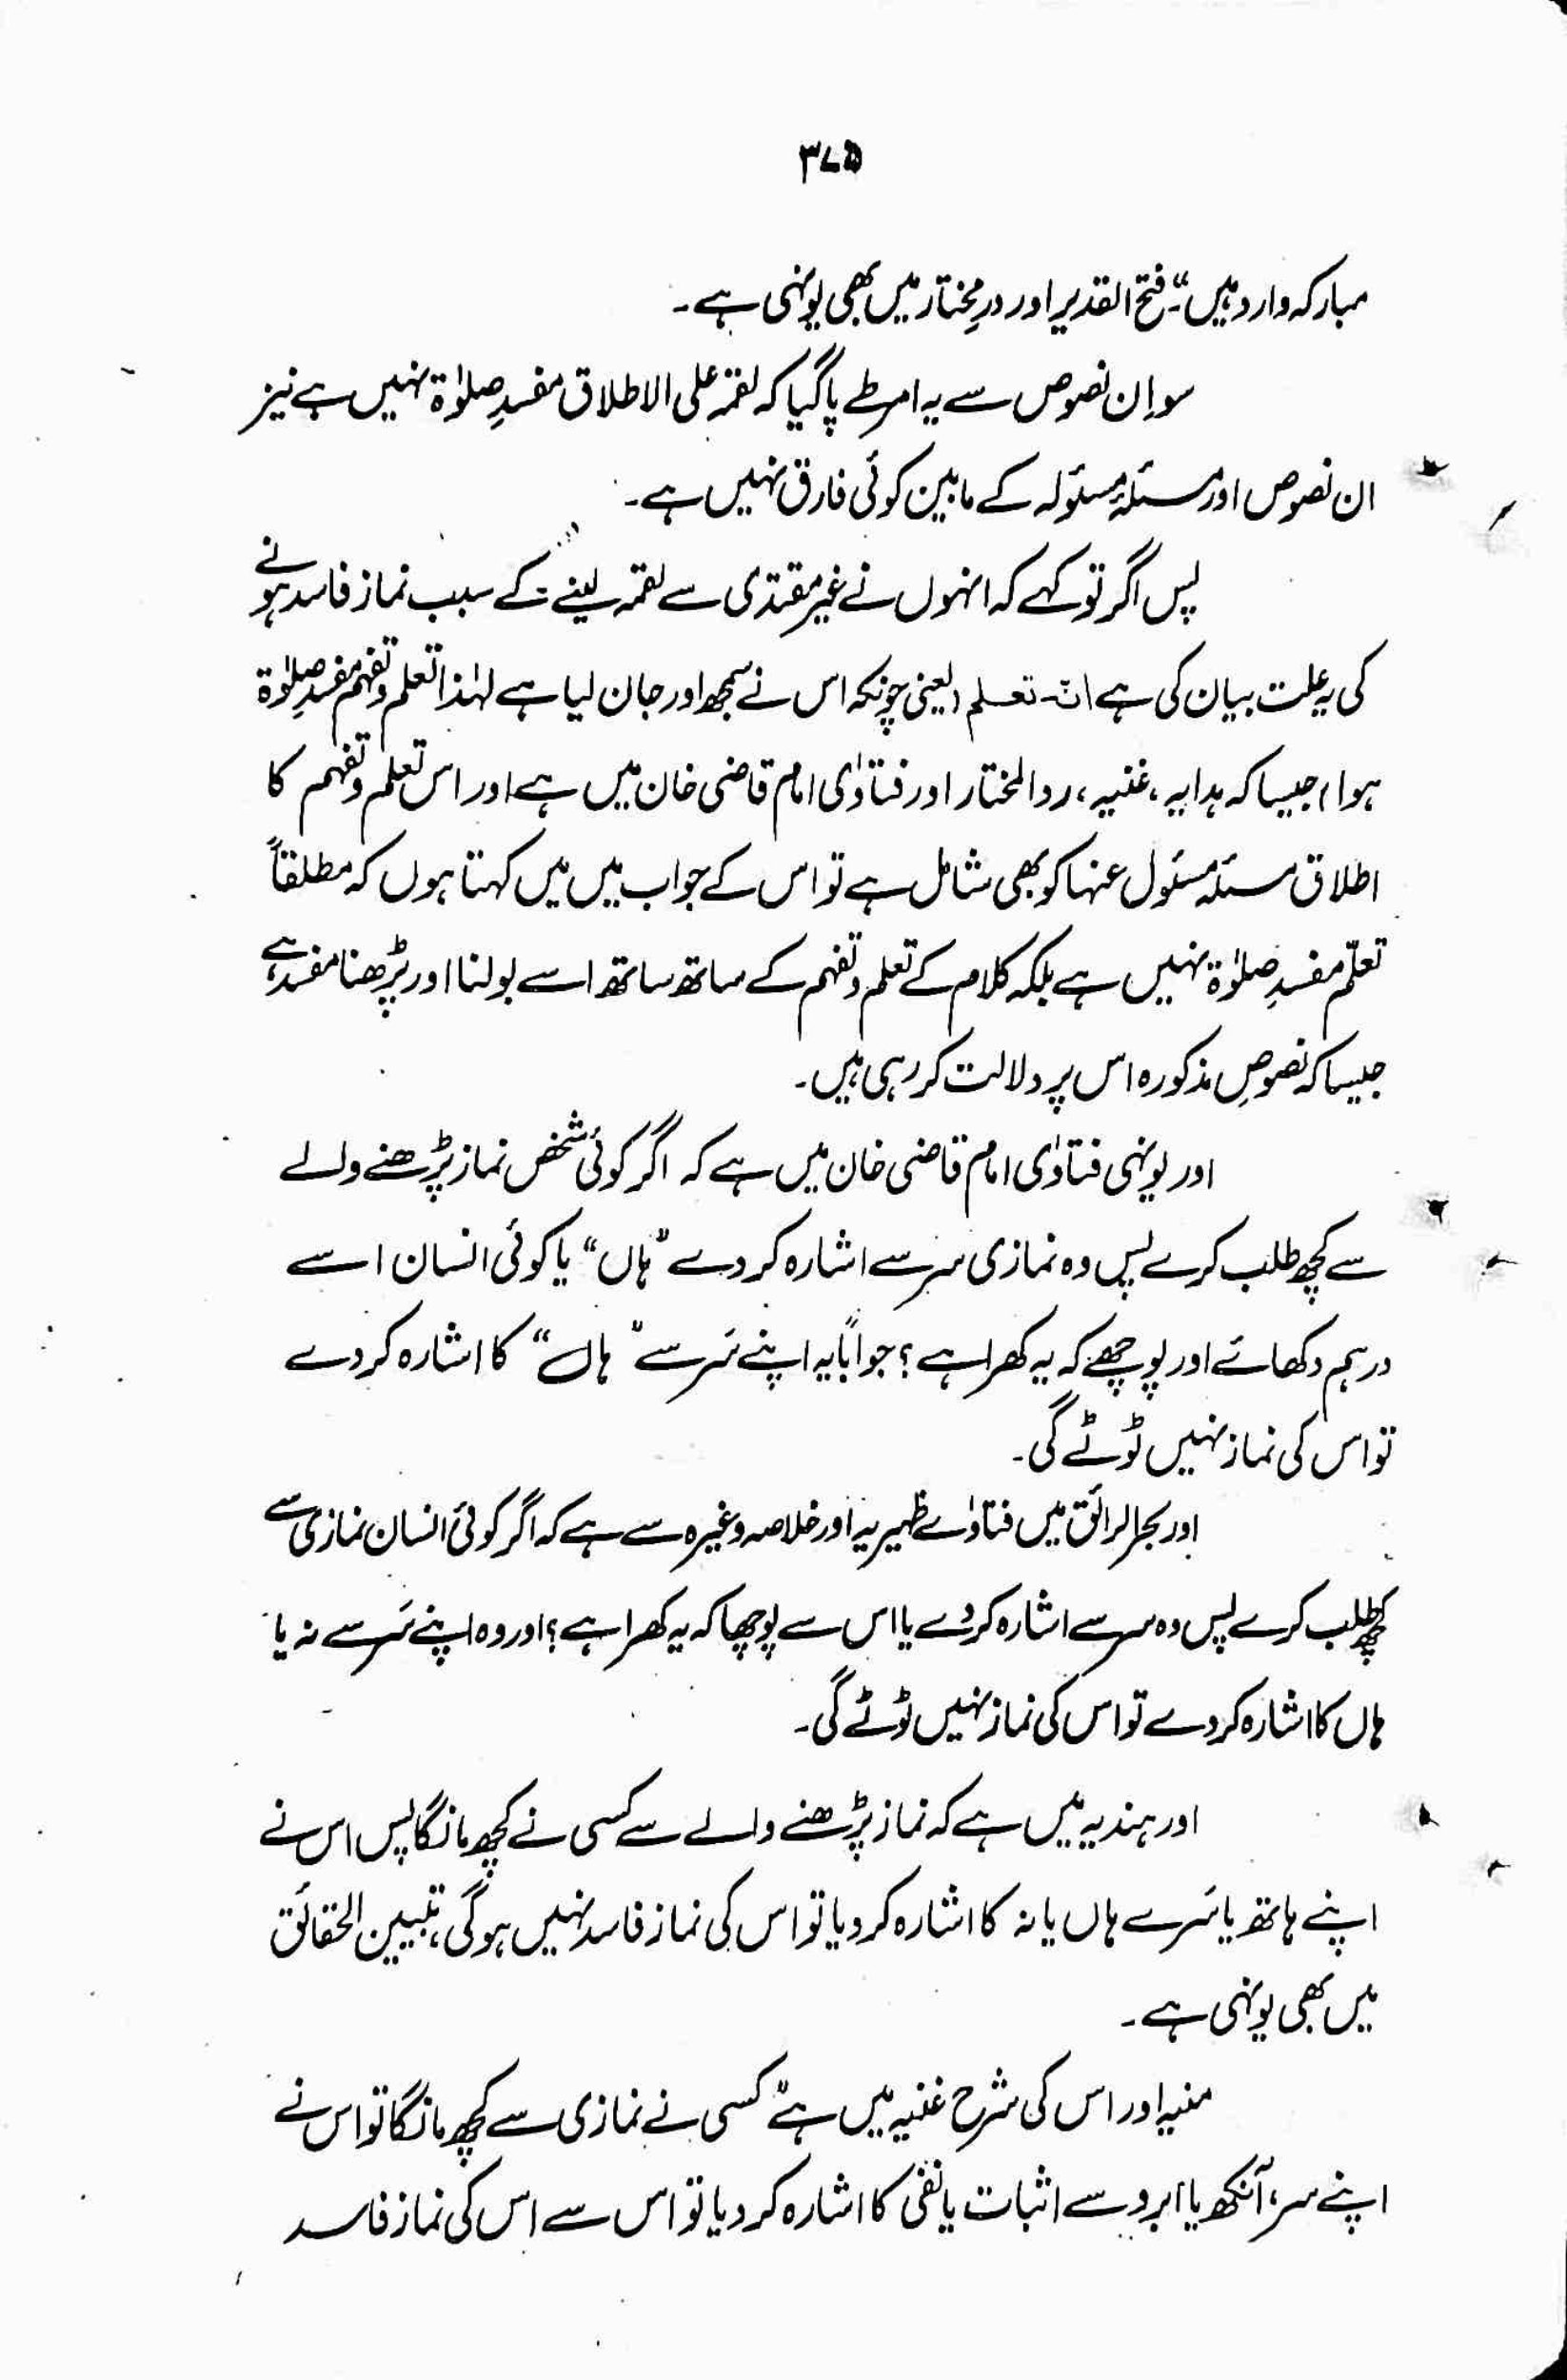 ۳۷۵
مبارکہ وارد ہیں“۔ فتح القدیر اور درمختار میں بھی یونہی ہے۔
سو اِن نصوص سے یہ امر طے پاگیا کہ لقمہ علی الاطلاق مفسدِ صلوٰۃ نہیں ہے نیز
ان نصوص اور مسئلۂ مسئولہ کے مابین کوئی فارق نہیں ہے۔
پس اگر تو کہے کہ انہوں نے غیر مقتدی سے لقمہ لینے کے سبب نماز فاسد ہونے
کی یہ علت بیان کی ہے انہ تعلم (یعنی چونکہ اس نے سمجھ اور جان لیا ہے لہٰذا تعلم وتفہم مفسدِ صلوٰۃ
ہوا) جیسا کہ ہدایہ، غنیہ، ردالمختار اور فتاوٰی امام قاضی خان میں ہے اور اس تعلم وتفہم کا
اطلاق مسئلہ مسئول عنہا کو بھی شامل ہے تو اس کے جواب میں میں کہتا ہوں کہ مطلقاً
تعلّم مفسدِ صلوٰۃ نہیں ہے بلکہ کلام کے تعلم وتفہم کے ساتھ ساتھ اسے بولنا اور پڑھنا مفسد ہے
جیسا کہ نصوصِ مذکورہ اس پر دلالت کر رہی ہیں۔
اور یونہی فتاوٰی امام قاضی خان میں ہے کہ اگر کوئی شخص نماز پڑھنے والے
سے کچھ طلب کرے پس وہ نمازی سر سے اشارہ کر دے ”ہاں“ یا کوئی انسان اسے
درہم دکھائے اور پوچھے کہ یہ کھرا ہے؟ جواباً یہ اپنے سَر سے ”ہاں“ کا اشارہ کر دے
تو اس کی نماز نہیں ٹوٹے گی۔
اور بحرالرائق میں فتاوٰے ظہیریہ اور خلاصہ وغیرہ سے ہے کہ اگر کوئی انسان نمازی سے
کچھ طلب کرے پس وہ سر سے اشارہ کر دے یا اس سے پوچھا کہ یہ کھرا ہے؟ اور وہ اپنے سَر سے نہ یا
ہاں کا اشارہ کر دے تو اس کی نماز نہیں ٹوٹے گی۔
اور ہندیہ میں ہے کہ نماز پڑھنے والے سے کسی نے کچھ مانگا پس اس نے
اپنے ہاتھ یا سَرے ہاں یا نہ کا اشارہ کر دیا تو اس کی نماز فاسد نہیں ہوگی، تبیین الحقائق
میں بھی یونہی ہے۔
منیہ اور اس کی شرح غنیہ میں ہے ”کسی نے نمازی سے کچھ مانگا تو اس نے
اپنے سر، آنکھ یا ابرو سے اثبات یا نفی کا اشارہ کر دیا تو اس سے اس کی نماز فاسد